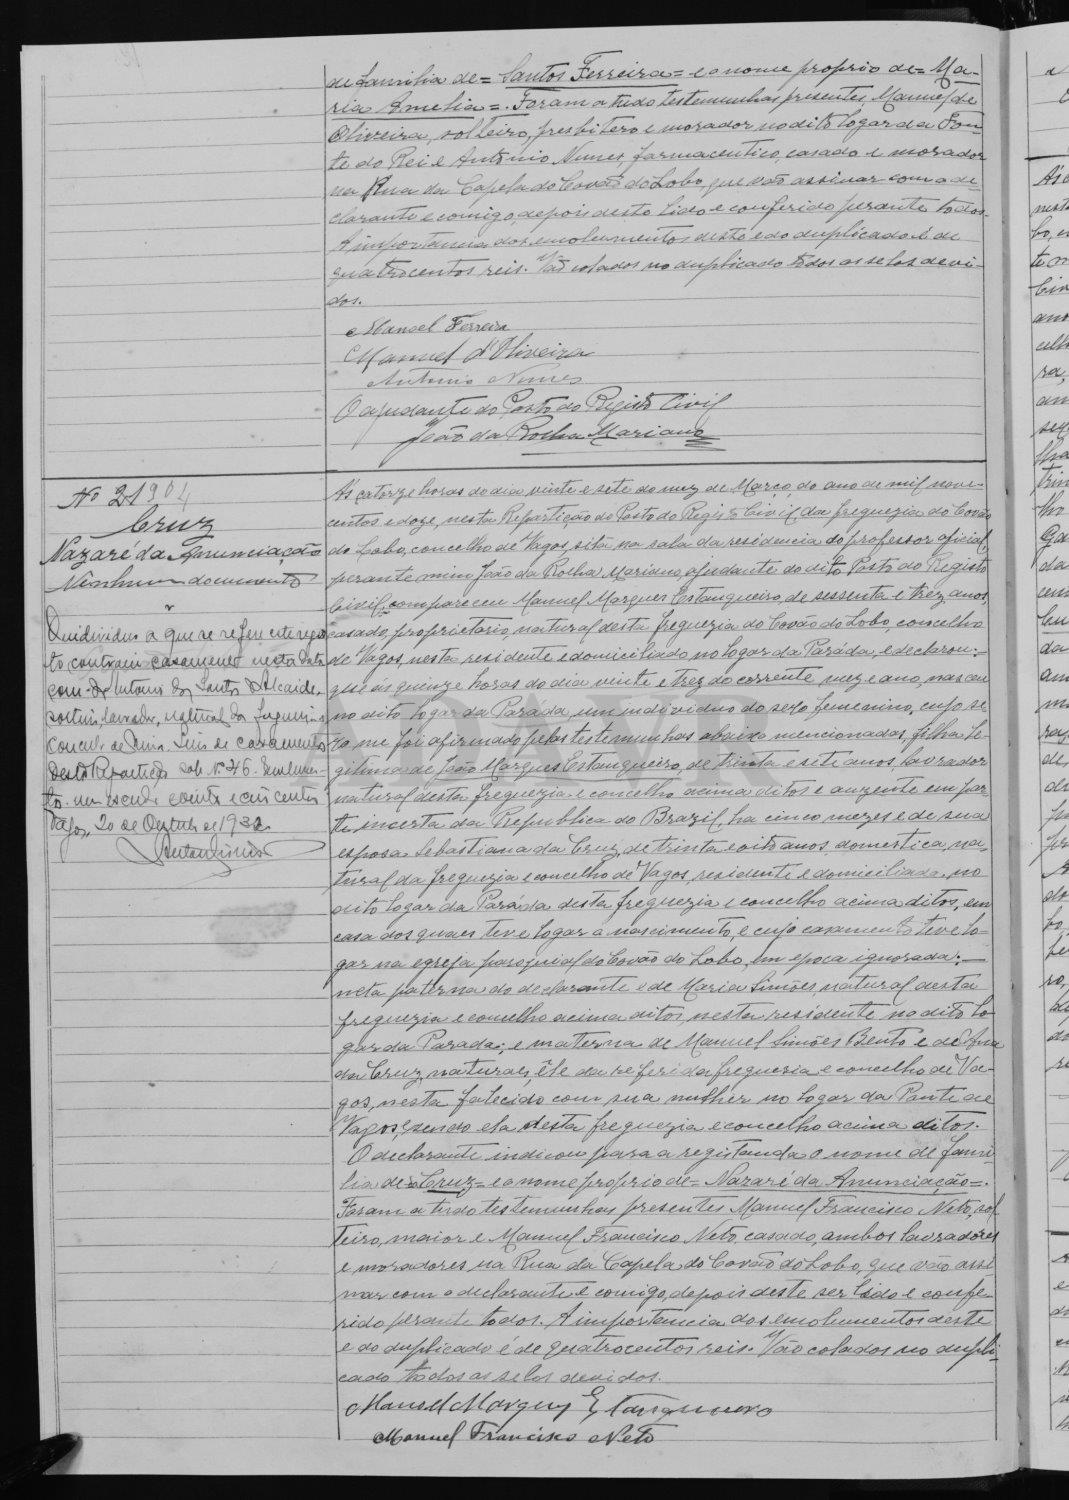 de familia de= Santos Ferreira = e o nome proprio de= Ma-
ria Amelia=. Foram a tudo testemunhas presentes Manuel de
Oliveira, solteiro, presbitero e morador no dito logar da Fon-
te do Rei e António Nunes, farmaceutico, casado e morador
na Rua da Capela do Covão do Lobo, que vão assinar com o de-
clarante e comigo, depois desto lido e conferido perante todos.
A importancia dos emolumentos deste e do duplicado é de
quatrocentos reis. Vão colados no duplicado todos os selos devi-
dos.
Manoel Ferreira
Manuel d'Oliveira
Antonio Nunes
O ajudante do Posto do Registo Civil
João da Rocha Mariano
Nº 21904
Cruz
Nazaré da Anunciação
Nenhum documento
O individuo a que se refere este regis-
to contraiu casamento nesta data
com Antonio dos Santos Alcaide,
solteiro, lavrador, natural da freguezia
concelho de Mira. Livro de casamentos
desta Repartição sob Nº 46.
Vagos, 20 de de 1932
A's catorze horas do dia vinte e sete do mez de Março do ano de mil nove-
centos e doze, nesta Repartição do Posto do Registo Civil da freguezia do Covão
do Lobo, concelho de Vagos, sita na sala da residencia do professor oficial,
perante mim João da Rocha Mariano, ajudante do dito Posto do Registo
Civil, compareceu Manuel Marques Estangueiro, de sessenta e trez anos,
casado, proprietario, natural desta freguezia do Covão do Lobo, concelho
de Vagos, nesta residente e domiciliado, no logar da Paráda, e declarou:-
que ás quinze horas do dia vinte e trez do corrente mez e ano, nasceu
no dito logar da Parada, um individuo do sexo femenino, cujo se-
xo me foi afirmado pelas testemunhas abaixo mencionadas, filha le-
gitima de João Marques Estangueiro, de trinta e sete anos, lavrador
natural desta freguezia e concelho acima ditos e auzente em par-
te incerta da Republica do Brazil, ha cinco mezes e de sua
esposa Sebastiana da Cruz, de trinta e oito anos, domestica, na-
tural da freguezia e concelho de Vagos, residente e domiciliada, no
dito logar da Paráda desta freguezia e concelho acima ditos, em
casa dos quaes teve logar o nascimento, e cujo casamento teve lo-
gar na egreja paroquial do Covão do Lobo, em epoca ignorada;-
neta paterna do declarante e de Maria Simões, natural desta
freguezia e concelho acima ditos, nesta residente no dito lo-
gar da Parada; e materna de Manuel Simões Bento e de Ana
da Cruz, naturaes, êle da referida freguesia e concelho de Va-
gos, nesta falecido com sua mulher no logar da Ponte de
Vagos, sendo ela desta freguezia e concelho acima ditos.
O declarante indicou para a registanda o nome de fami-
lia de= Cruz = e o nome proprio de= Nazaré da Anunciação=.
Foram a tudo testemunhas presentes Manuel Francisco Neto, sol-
teiro, maior e Manuel Francisco Neto, casado, ambos lavradores
e moradores na Rua da Capela do Covão do Lobo, que vão assi-
nar com o declarante e comigo, depois deste ser lido e confe-
rido perante todos. A importancia dos emolumentos deste
e do duplicado é de quatrocentos reis. Vão colados no dupli-
cado todos os selos devidos.
Manoel Marques Estangueiro
Manuel Francisco Neto